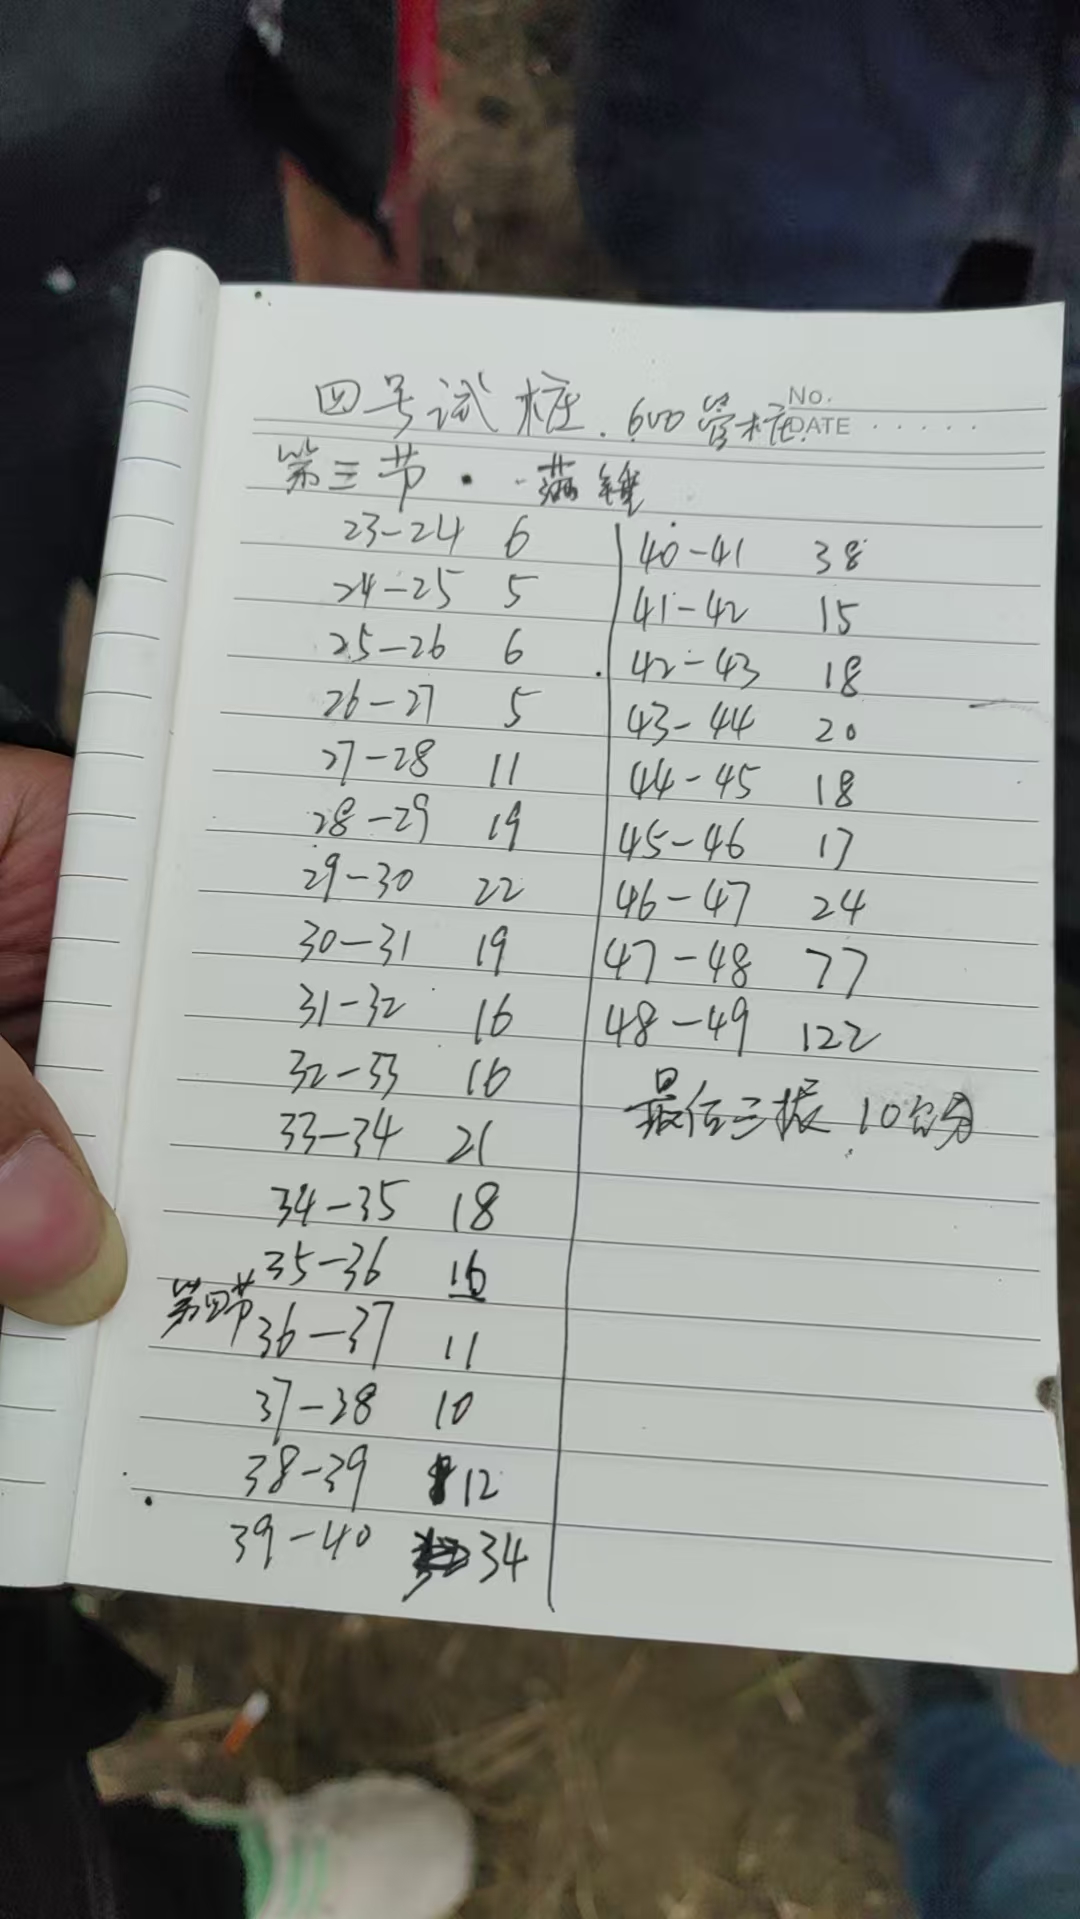 四号试桩. 600管桩
No.
DATE
第三节. 满锤
23-24 6
24-25 5
25-26 6
26-27 5
27-28 11
28-29 19
29-30 22
30-31 19
31-32 16
32-33 16
33-34 21
34-35 18
35-36 16
第四节
36-37 11
37-38 10
38-39 12
39-40 34
40-41 38
41-42 15
42-43 18
43-44 20
44-45 18
45-46 17
46-47 24
47-48 77
48-49 122
最后三振 10公分